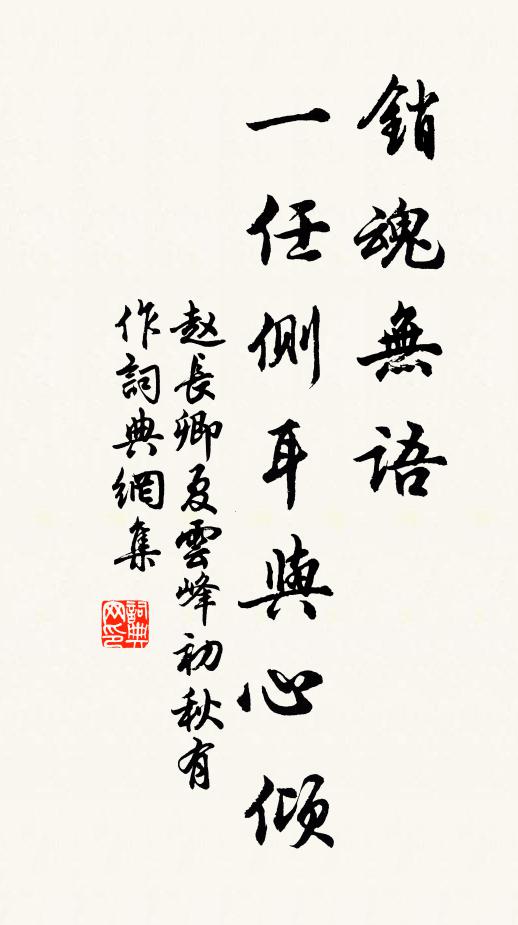 銷魂無語
一任側耳與心傾
赵長卿夏雲峰初秋有
作詞典網集
詞典网印